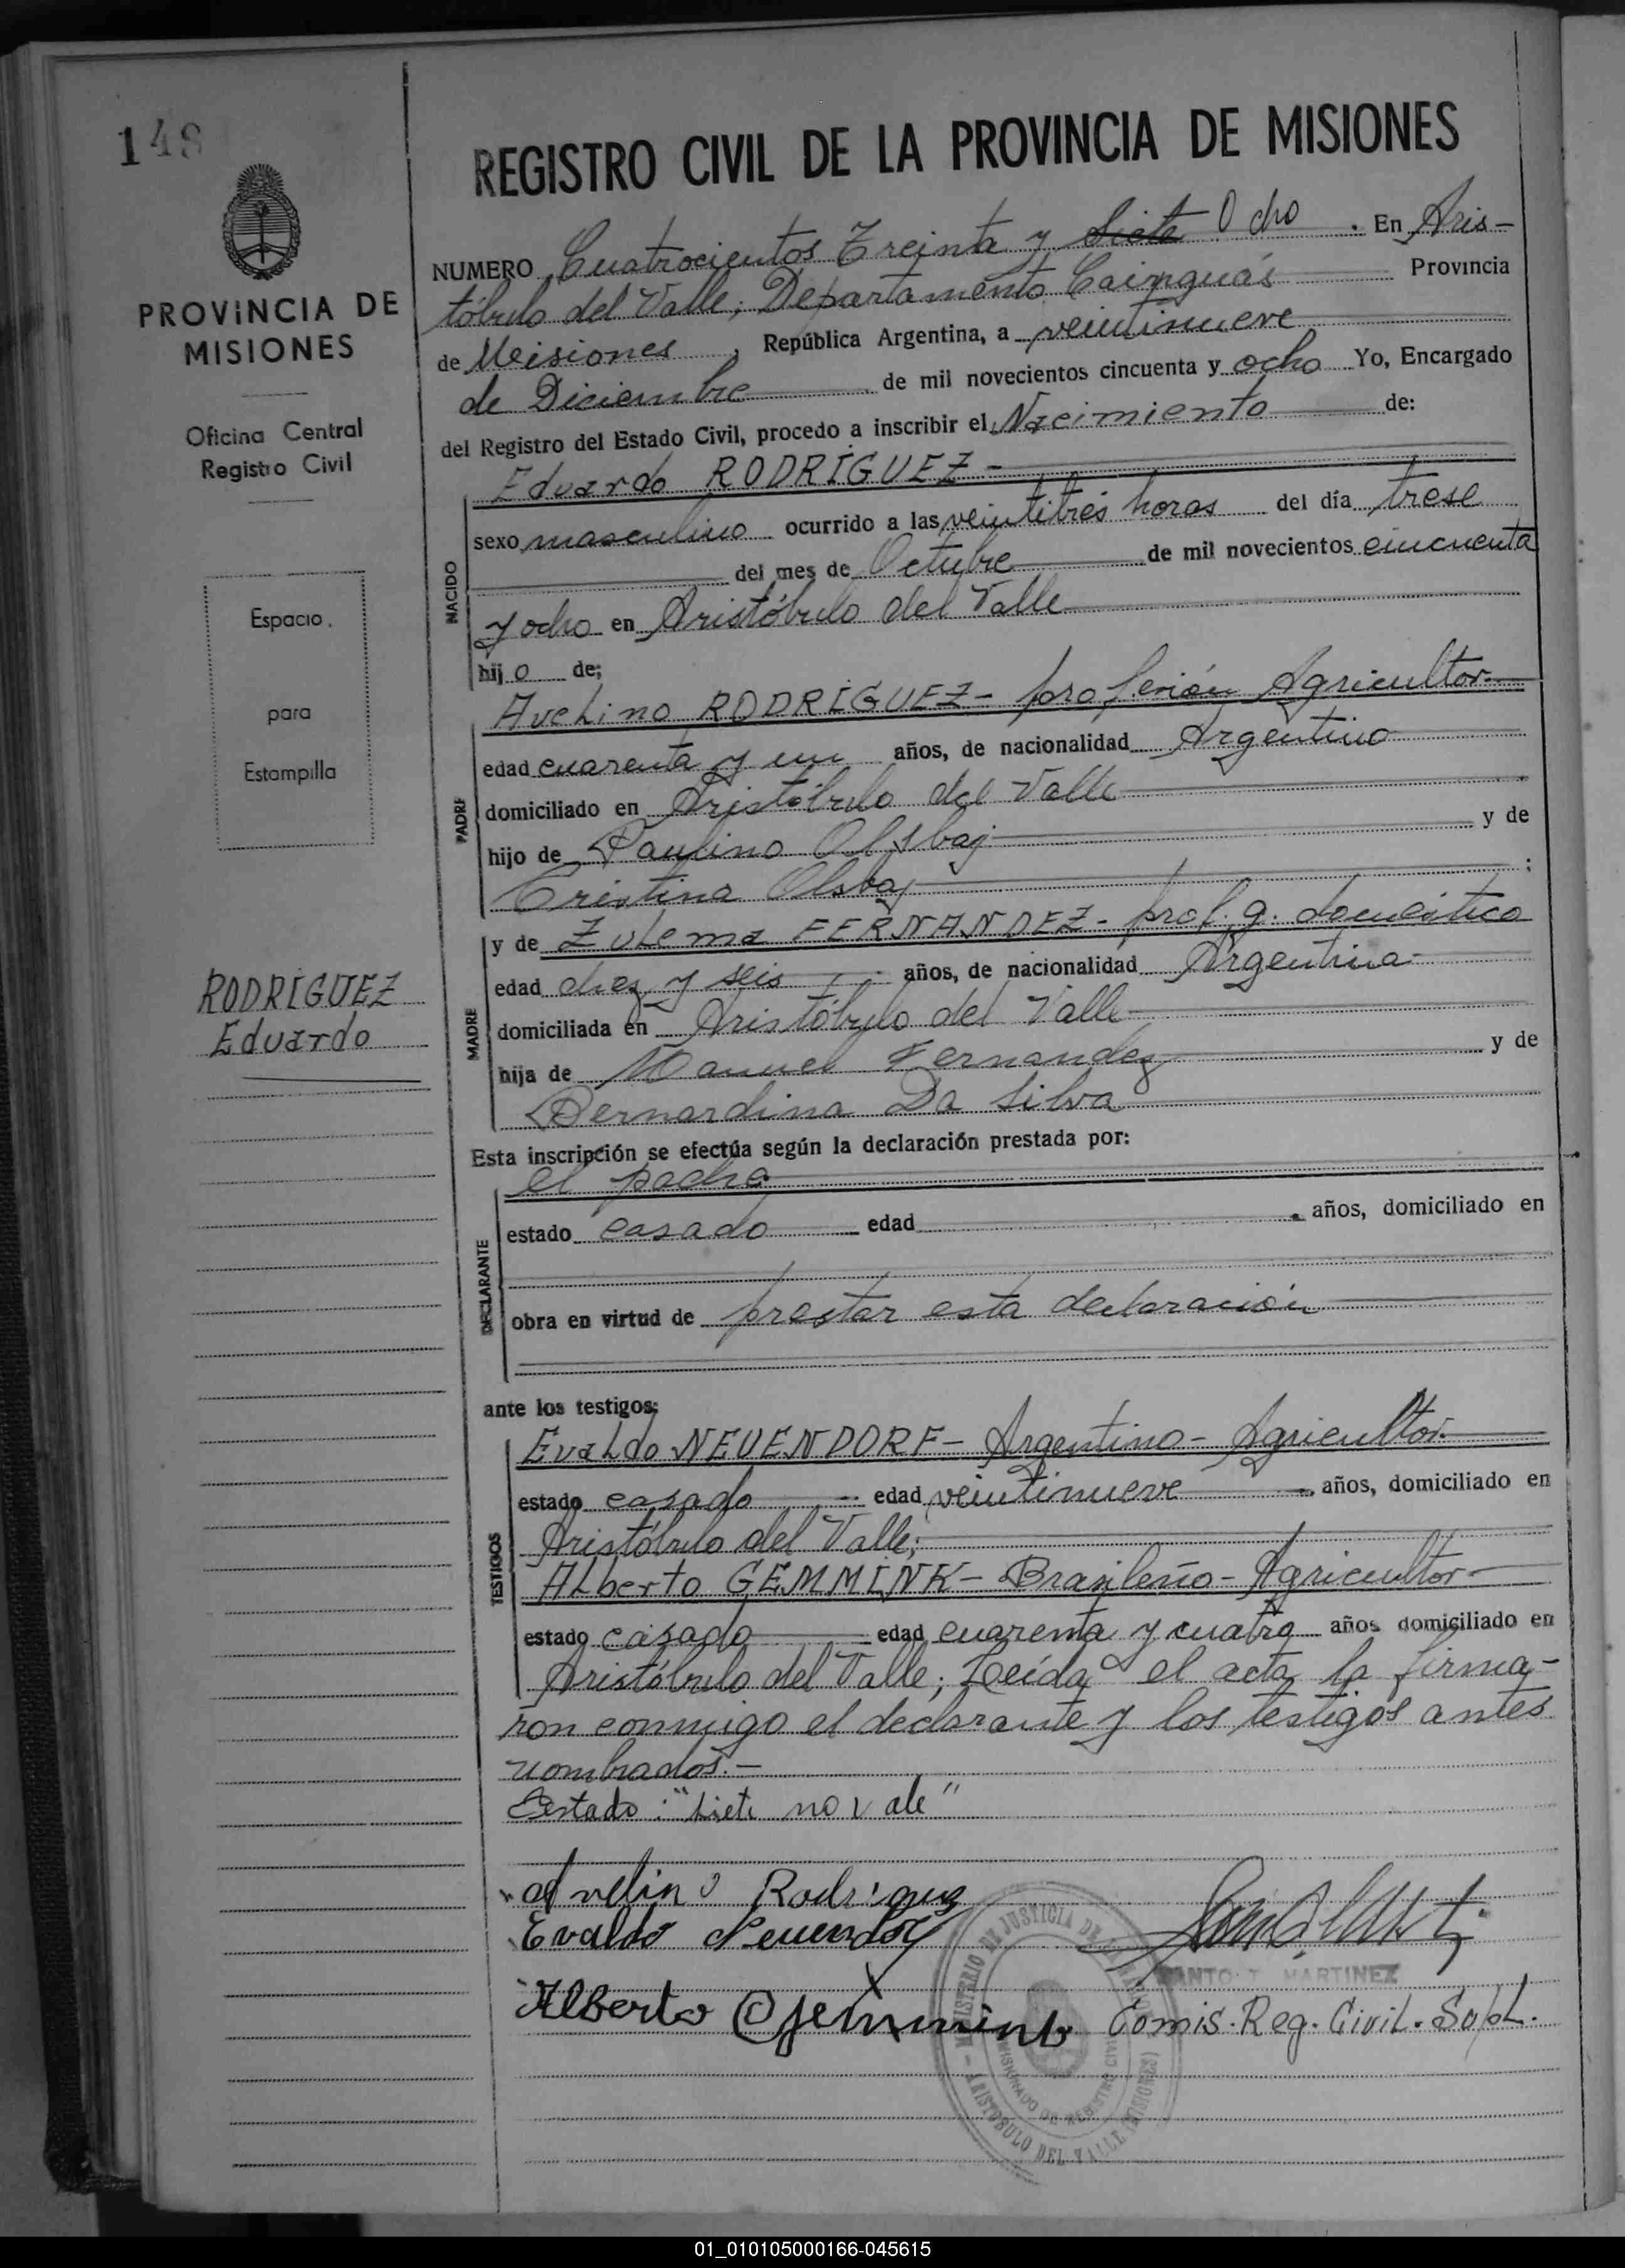 148
PROVINCIA DE
MISIONES
Oficina Central
Registro Civil
Espacio
para
Estampilla
RODRÍGUEZ
Eduardo
REGISTRO CIVIL DE LA PROVINCIA DE MISIONES
NUMERO Cuatrocientos Treinta y Siete Ocho. En Aris-
tóbulo del Valle, Departamento Cainguás Provincia
de Misiones, República Argentina, a veintinueve
de Diciembre de mil novecientos cincuenta y ocho Yo, Encargado
del Registro del Estado Civil, procedo a inscribir el Nacimiento de:
NACIDO
Eduardo RODRÍGUEZ-
sexo masculino ocurrido a las veintitrés horas del día trese
del mes de Octubre de mil novecientos cincuenta
y ocho en Aristóbulo del Valle
hijo de;
PADRE
Avelino RODRÍGUEZ- profesión Agricultor-
edad cuarenta y un años, de nacionalidad Argentino
domiciliado en Aristóbulo del Valle
hijo de Paulino Olsbaj y de
Cristina Olsbaj;
MADRE
y de Zulema FERNANDEZ- prof. q. doméstico
edad diez y seis años, de nacionalidad Argentina-
domiciliada en Aristóbulo del Valle
hija de Manuel Fernandez y de
Bernardina Da Silva
Esta inscripción se efectúa según la declaración prestada por:
DECLARANTE
el padre
estado casado edad años, domiciliado en
obra en virtud de prestar esta declaración
ante los testigos:
TESTIGOS
Evaldo NEUENDORF- Argentino- Agricultor-
estado casado edad veintinueve años, domiciliado en
Aristóbulo del Valle;
Alberto GEMMINK- Brasileño- Agricultor-
estado casado edad cuarenta y cuatro años domiciliado en
Aristóbulo del Valle; Leída el acta la firma-
ron conmigo el declarante y los testigos antes
nombrados.-
Testado: "Siete no vale"
Avelino Rodriguez
Evaldo Neuendorf
Alberto Gemmink
MARTINEZ
Comis. Reg. Civil. Supl.
MINISTERIO DE JUSTICIA DE LA
ARISTOBULO DEL VALLE (MISIONES)
01_010105000166-045615